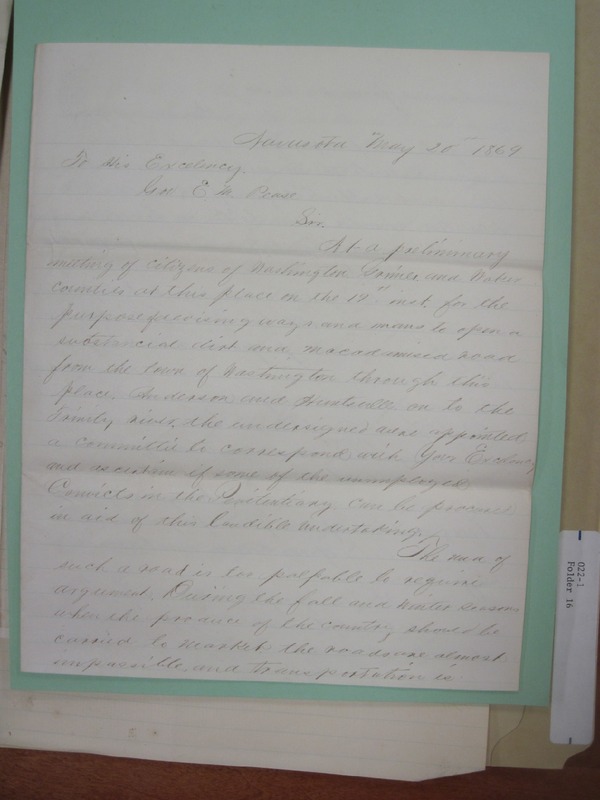 Navisota May 20th 1869
To His Excelency.
Gov E. M. Pease
Sir.
At a preliminary
meeting of citizens of Washington Grimes and Walker
counties at this place on the 19th inst. for the
purpose of devising ways and means to open a
substancial dirt and macadamised road
from the town of Washington through this
place, Anderson and Huntsville on to the
Trinity river, the undersigned were appointed
a committee to correspond with Your Excelency
and ascertain if some of the unemployed
Convicts in the Penitentiary can be procured
in aid of this laudible undertaking.
The need of
such a road is too palpable to require
argument. During the fall and winter seasons
when the produce of the country should be
carried to market the roads are almost
impassible and transportation is
022-1
Folder 16